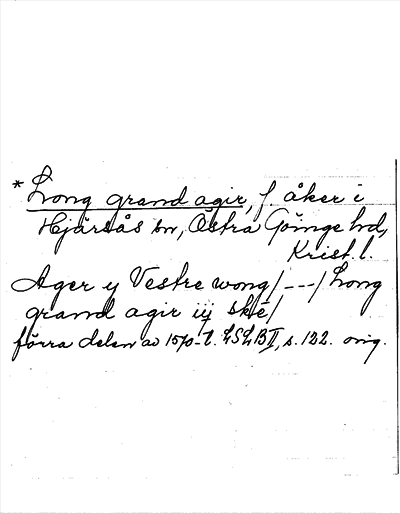 * Long grand agir, f. åker i
Hjärsås sn, Östra Göinge hd,
Krist. l.
Ager y Vestre wong/---/Long
grand agir iij skē/
förra delen av 1570-t. LSLB II, s. 122. orig.